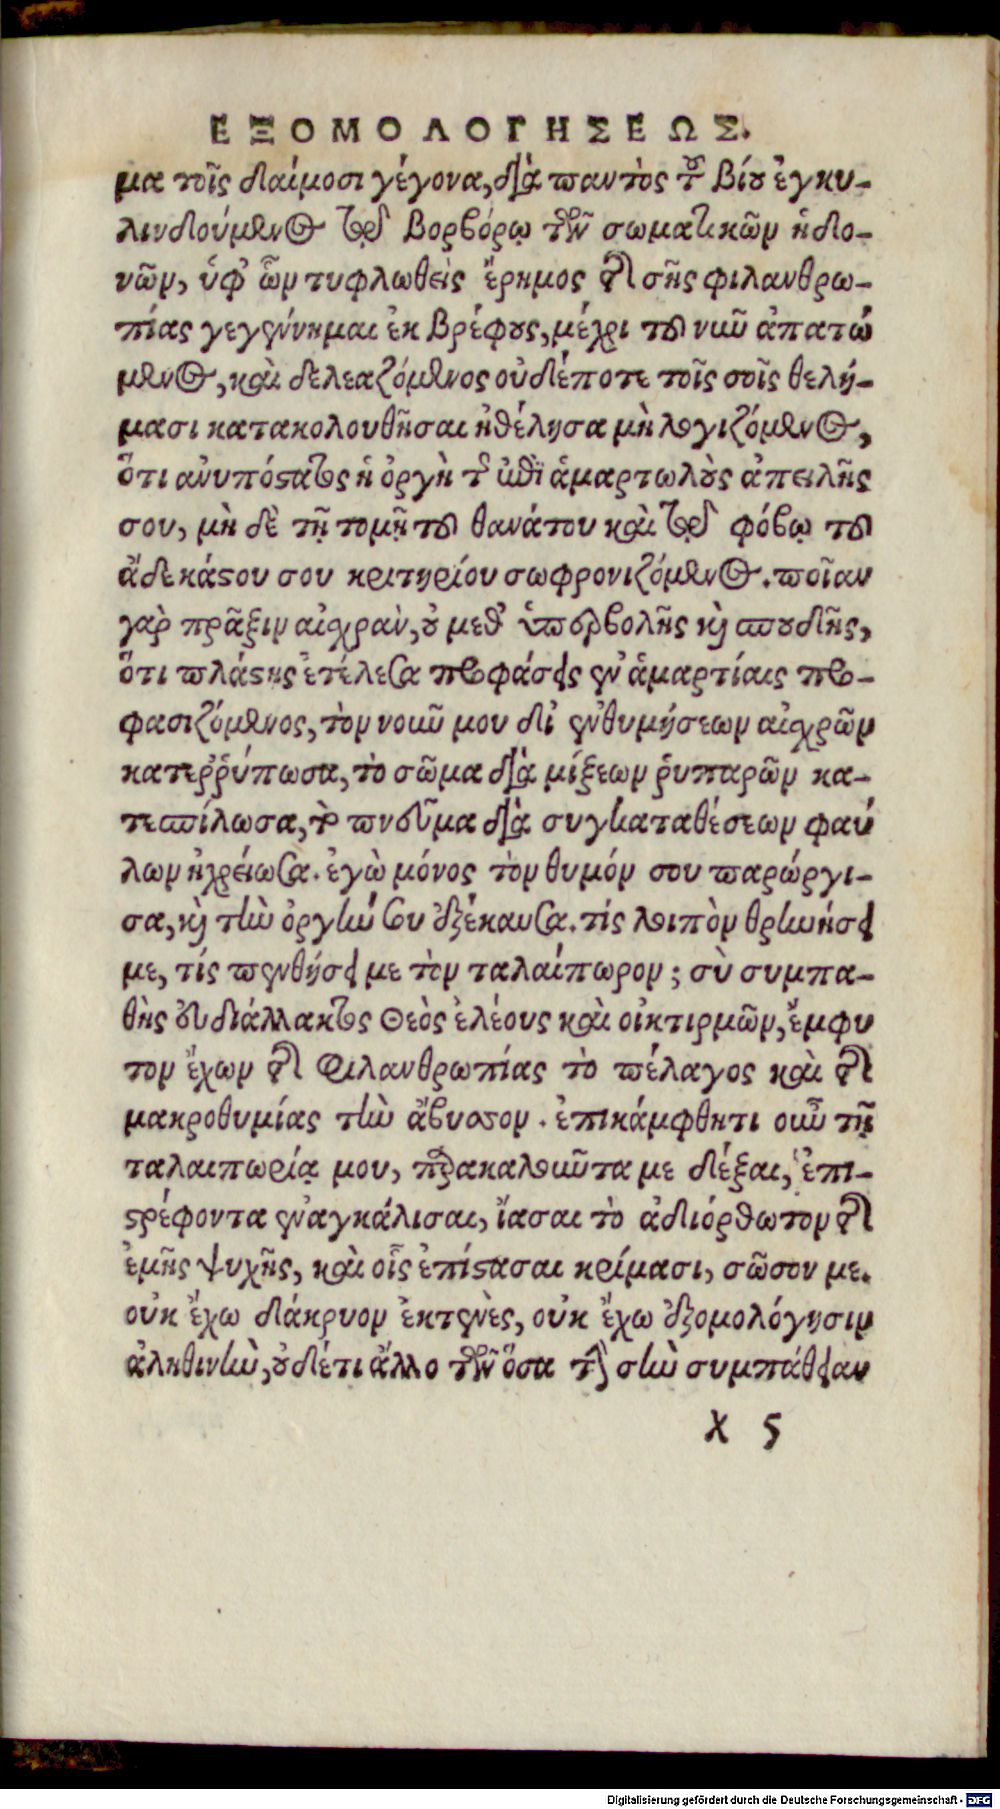 ΕΞΟΜΟΛΟΓΗΣΕΩΣ.
μα τοῖς δαίμοσι γέγονα, διὰ παντὸς τοῦ βίου ἐγκυ-
λινδούμενος τῷ βορβόρῳ τῶν σωματικῶν ἡδο-
νῶν, ὑφ' ὧν τυφλωθεὶς ἔρημος τῆς σῆς φιλανθρω-
πίας γεγέννημαι ἐκ βρέφους, μέχρι τοῦ νῦν ἀπατώ
μενος, καὶ δελεαζόμενος οὐδέποτε τοῖς σοῖς θελή-
μασι κατακολουθῆσαι ἠθέλησα μὴ λογιζόμενος,
ὅτι ἀνυπόστατος ἡ ὀργὴ τῆς ἐπὶ ἁμαρτωλοὺς ἀπειλῆς
σου, μὴ δὲ τῇ τομῇ τοῦ θανάτου καὶ τῷ φόβῳ τοῦ
ἀδεκάστου σου κριτηρίου σωφρονιζόμενος. ποῖαν
γὰρ πρᾶξιν αἰσχρὰν, οὐ μεθ' ὑπερβολῆς καὶ σπουδῆς,
ὅτι πλάστης ἐτέλεσα προφάσεις ἐν ἁμαρτίαις προ-
φασιζόμενος, τὸν νοῦν μου δι' ἐνθυμήσεων αἰσχρῶν
κατεῤῥύπωσα, τὸ σῶμα διὰ μίξεων ῥυπαρῶν κα-
τεσπίλωσα, τὸ πνεῦμα διὰ συγκαταθέσεων φαύ
λων ἠχρείωσα. ἐγὼ μόνος τὸν θυμόν σου παρώργι-
σα, καὶ τὴν ὀργήν σου ἐξέκαυσα. τίς λοιπὸν θρηνήσει
με, τίς πενθήσει με τὸν ταλαίπωρον; σὺ συμπα-
θὴς εὐδιάλλακτος Θεὸς ἐλέους καὶ οἰκτιρμῶν, ἔμφυ
τον ἔχων τῆς φιλανθρωπίας τὸ πέλαγος καὶ τῆς
μακροθυμίας τὴν ἄβυσσον. ἐπικάμφθητι οὖν τῇ
ταλαιπωρίᾳ μου, παρακαλοῦντα με δέξαι, ἐπι-
στρέφοντα ἐναγκάλισαι, ἴασαι τὸ ἀδιόρθωτον τῆς
ἐμῆς ψυχῆς, καὶ οἷς ἐπίστασαι κρίμασι, σῶσον με.
οὐκ ἔχω δάκρυον ἐκτενὲς, οὐκ ἔχω ἐξομολόγησιν
ἀληθινὴν, οὐδέτι ἄλλο τῶν ὅσα τὴν σὴν συμπάθειαν
χ 5
Digitalisierung gefördert durch die Deutsche Forschungsgemeinschaft - DFG